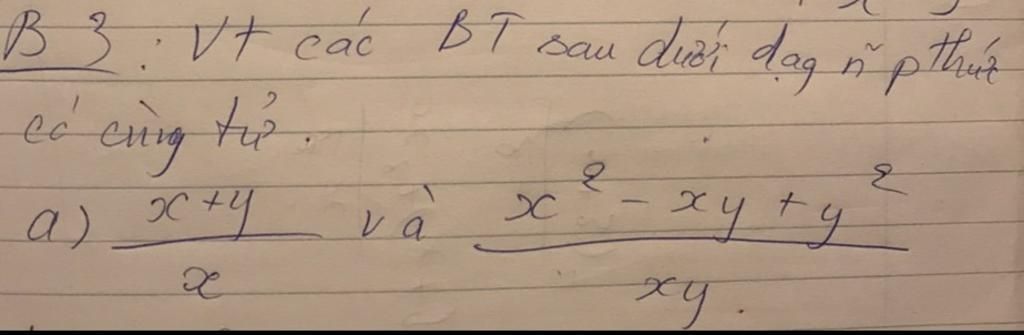 B3: Vt các BT sau dưới dạg ñ pthức
có cùng tử.
a) x+y / x và x² - xy + y² / xy.